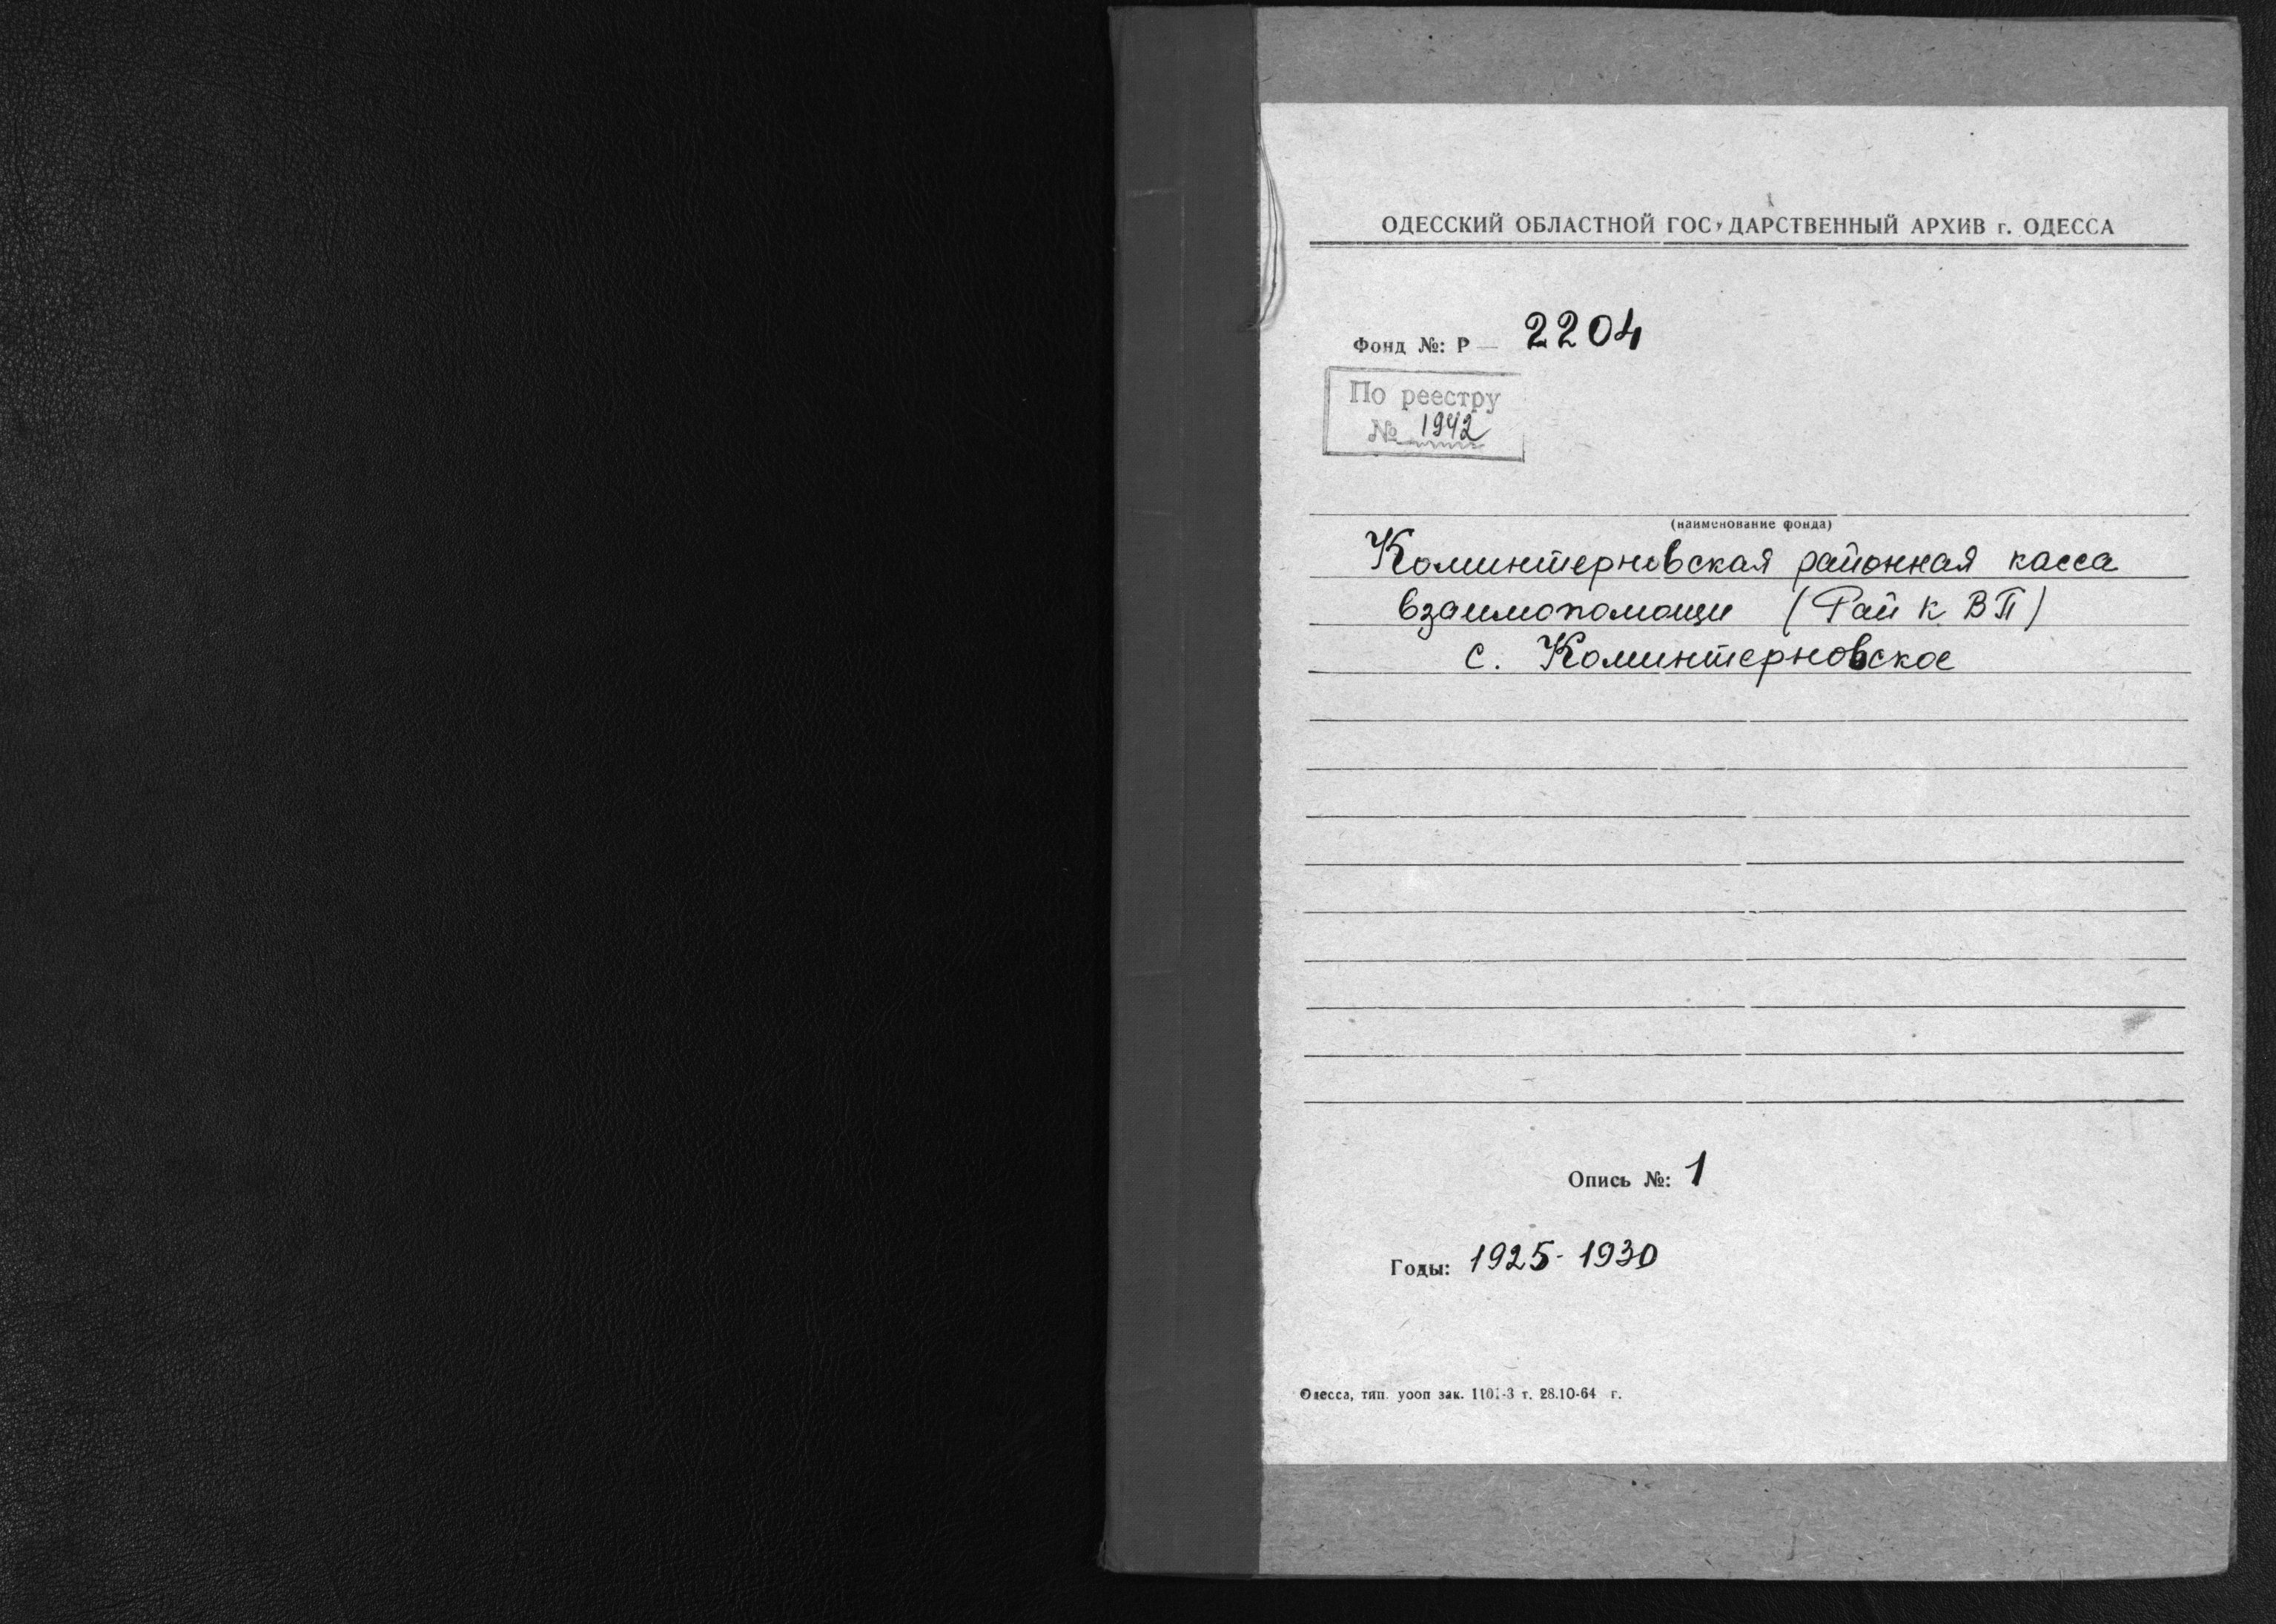 ОДЕССКИЙ ОБЛАСТНОЙ ГОСУДАРСТВЕННЫЙ АРХИВ г. ОДЕССА
Фонд №: Р — 2204
По реестру
№ 1942
(наименование фонда)
Коминтерновская районная касса
взаимопомощи (Рай к ВП)
с. Коминтерновское
Опись №: 1
Годы: 1925-1930
Одесса, тип. уооп зак. 1101-3 т. 28.10-64 г.